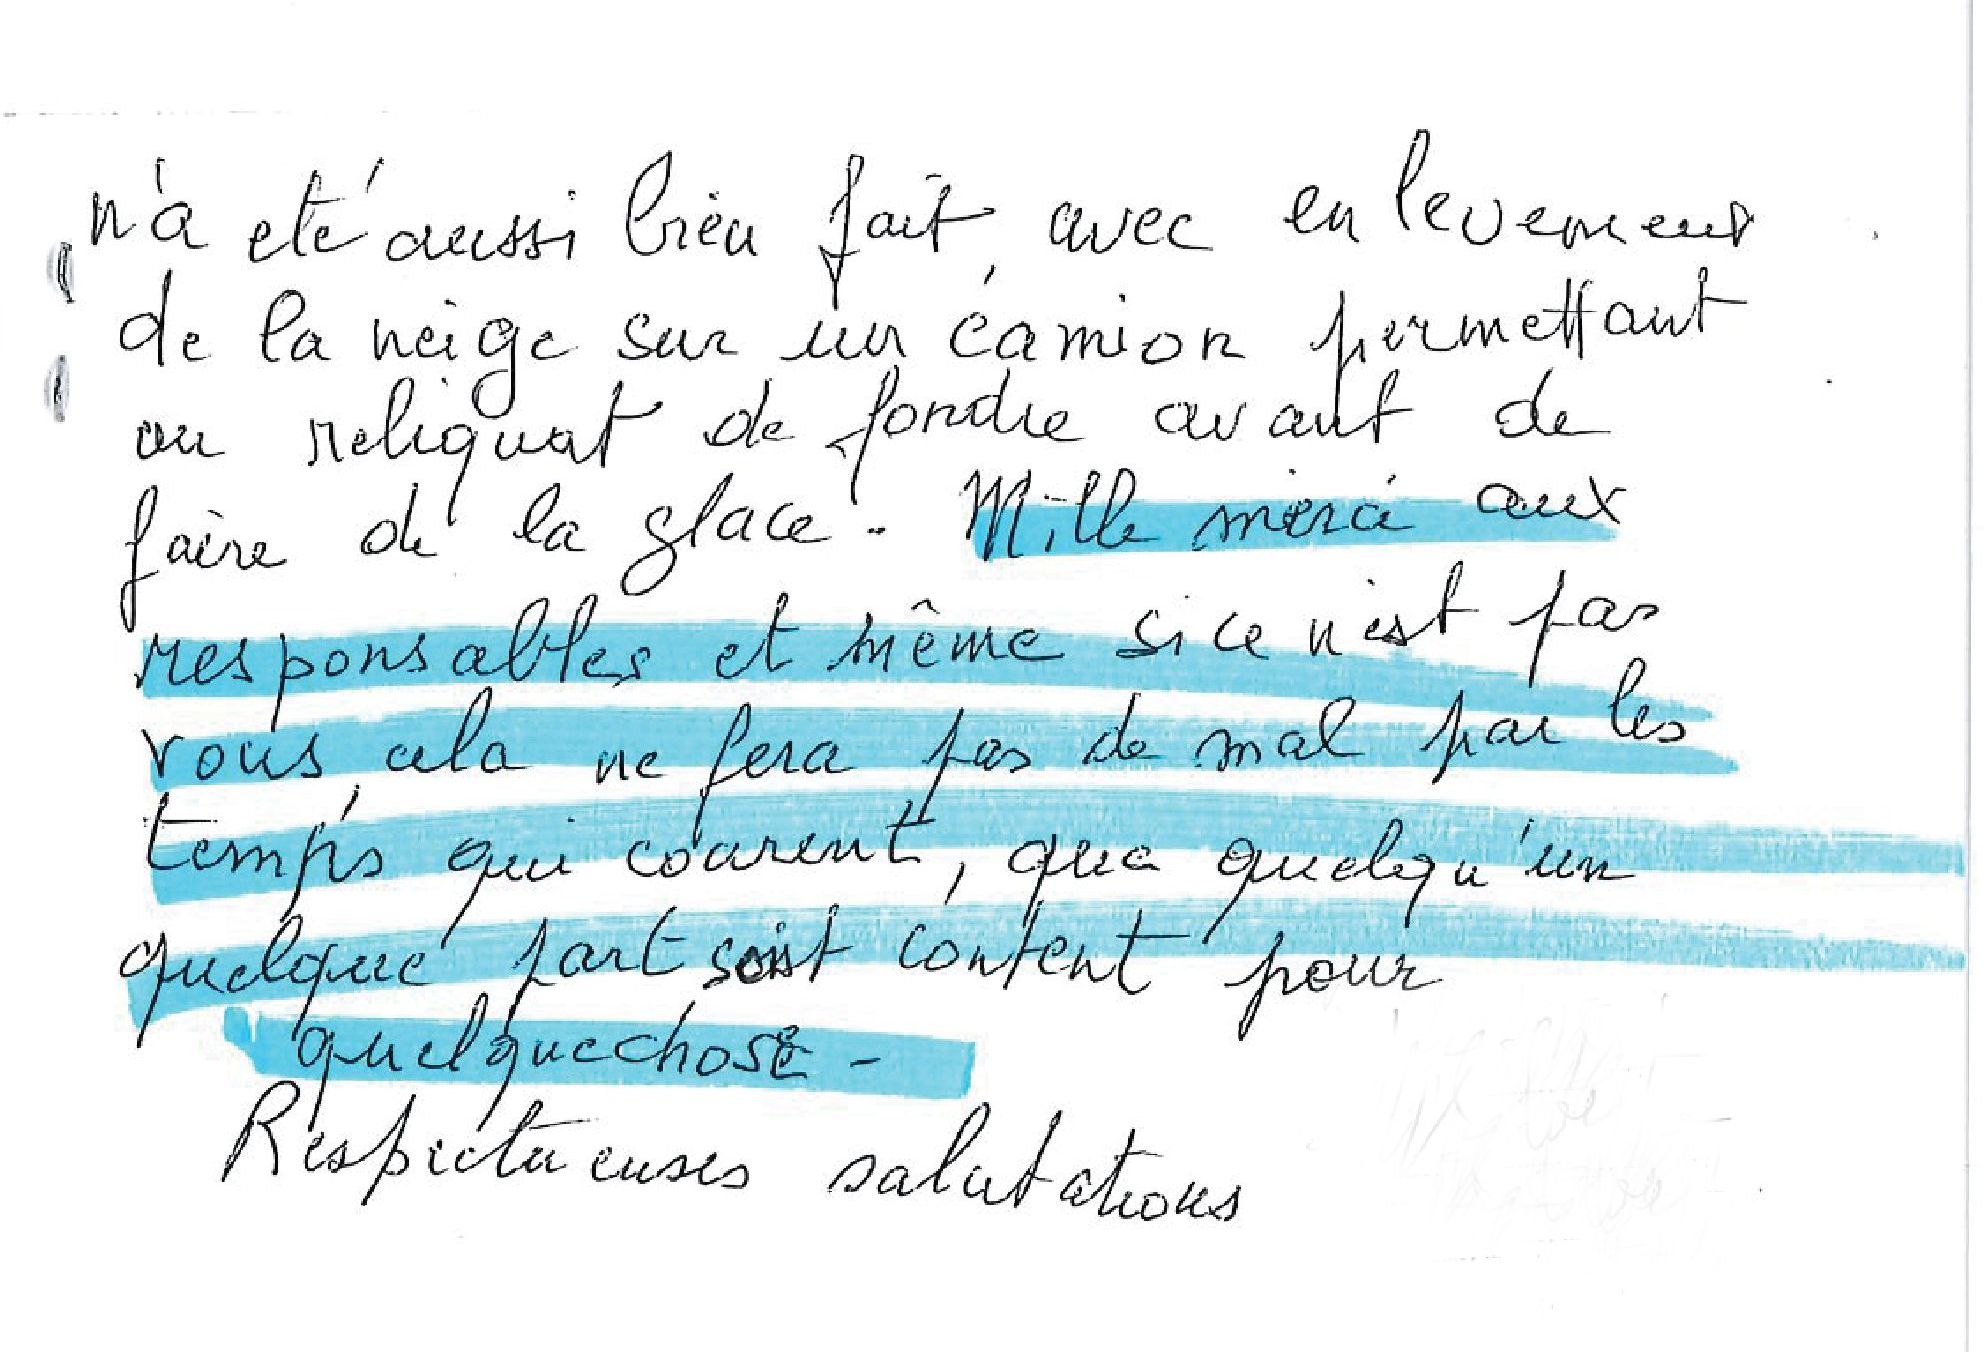 n'a eté aussi bien fait, avec enlevement
de la neige sur un camion permettant
au reliquat de fondre avant de
faire de la glace. Mille merci aux
responsables et même si ce n'est pas
vous, cela ne fera pas de mal par les
temps qui courent, que quelqu'un
quelque part soit content pour
quelquechose -
Respectueuses salutations